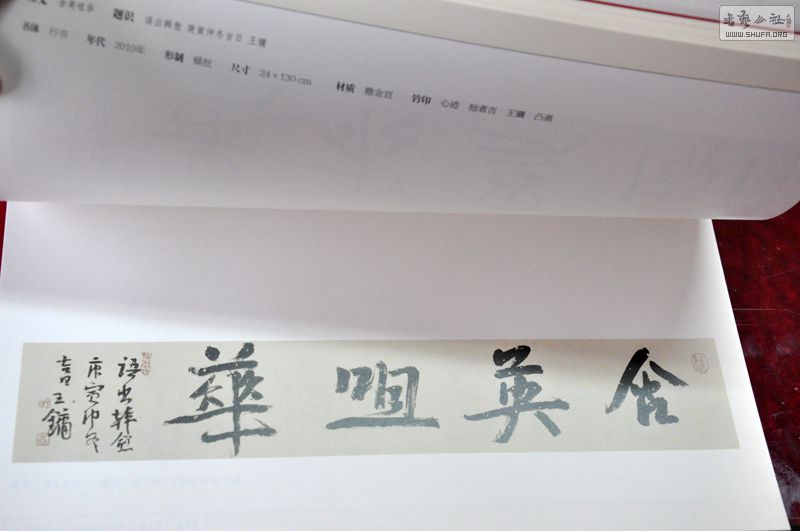 含英咀华 题识 语出韩愈 庚寅仲冬吉日 王镛
书体 行书 年代 2010年 形制 横批 尺寸 24×130cm 材质 洒金宣 钤印 心迹 拙者吉 王镛 凸斋
書藝公社
WWW.SHUFA.ORG
含英咀華
語出韓愈
庚寅仲冬
吉日王鏞